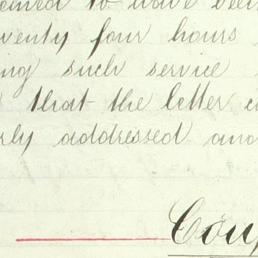 to have been
twenty four hours
such service
that the letter
addressed and